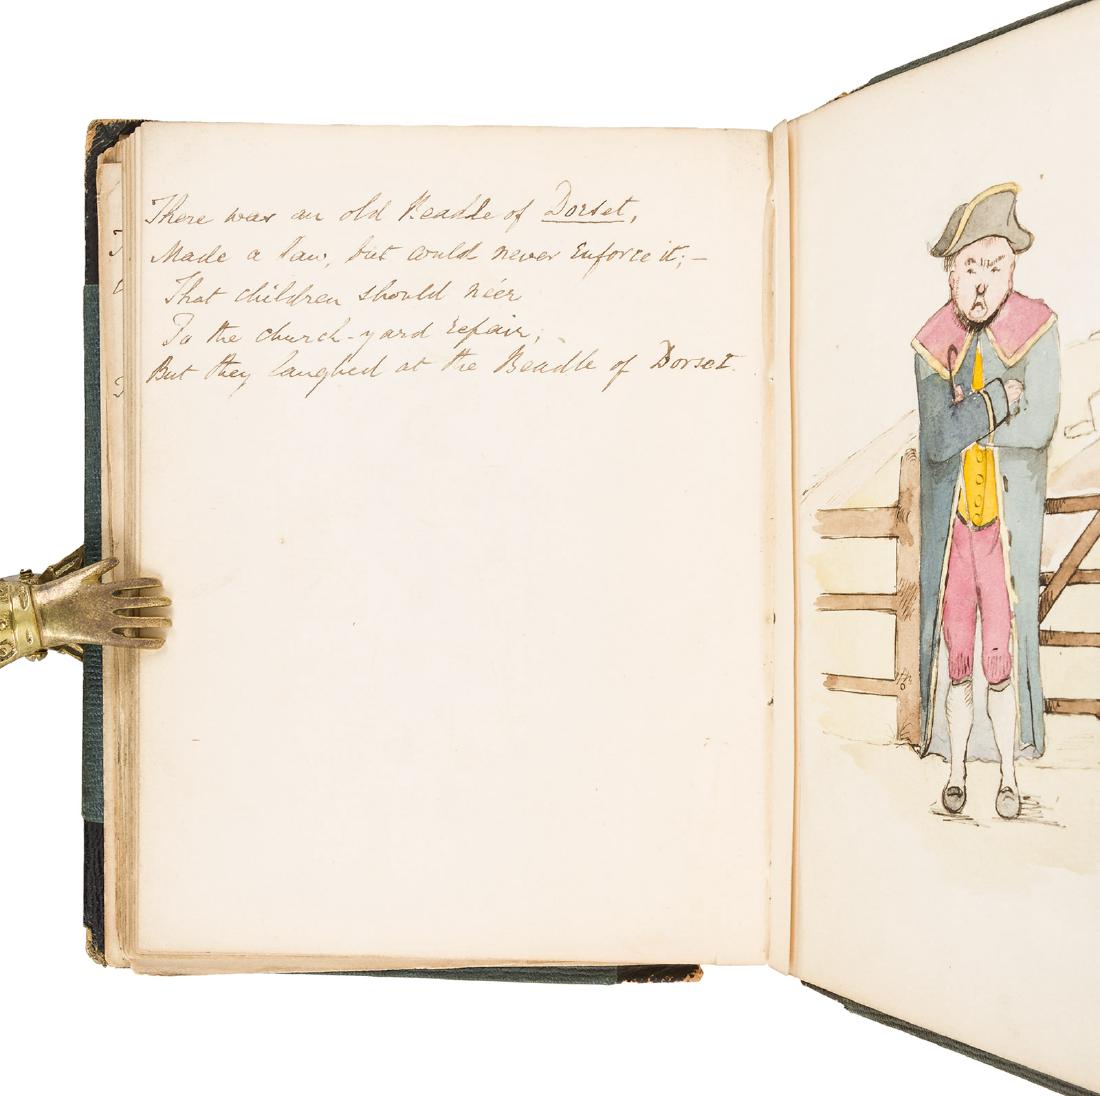 There was an old Beadle of Dorset,
Made a law, but could never Enforce it; –
That children should ne'er
To the church-yard repair;
But they laughed at the Beadle of Dorset.